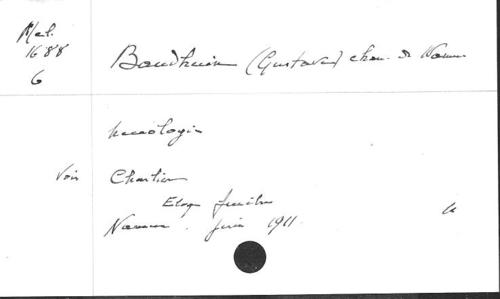 Mél.
1688
6
Baudhuin (Gustave) chan. de Namur
nécrologie
Voir Chartier
Eloge funèbre
Namur. juin 1911.